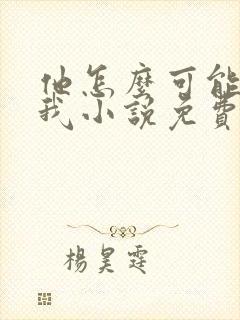 他怎麼可能
我小說免費
楊昊霆